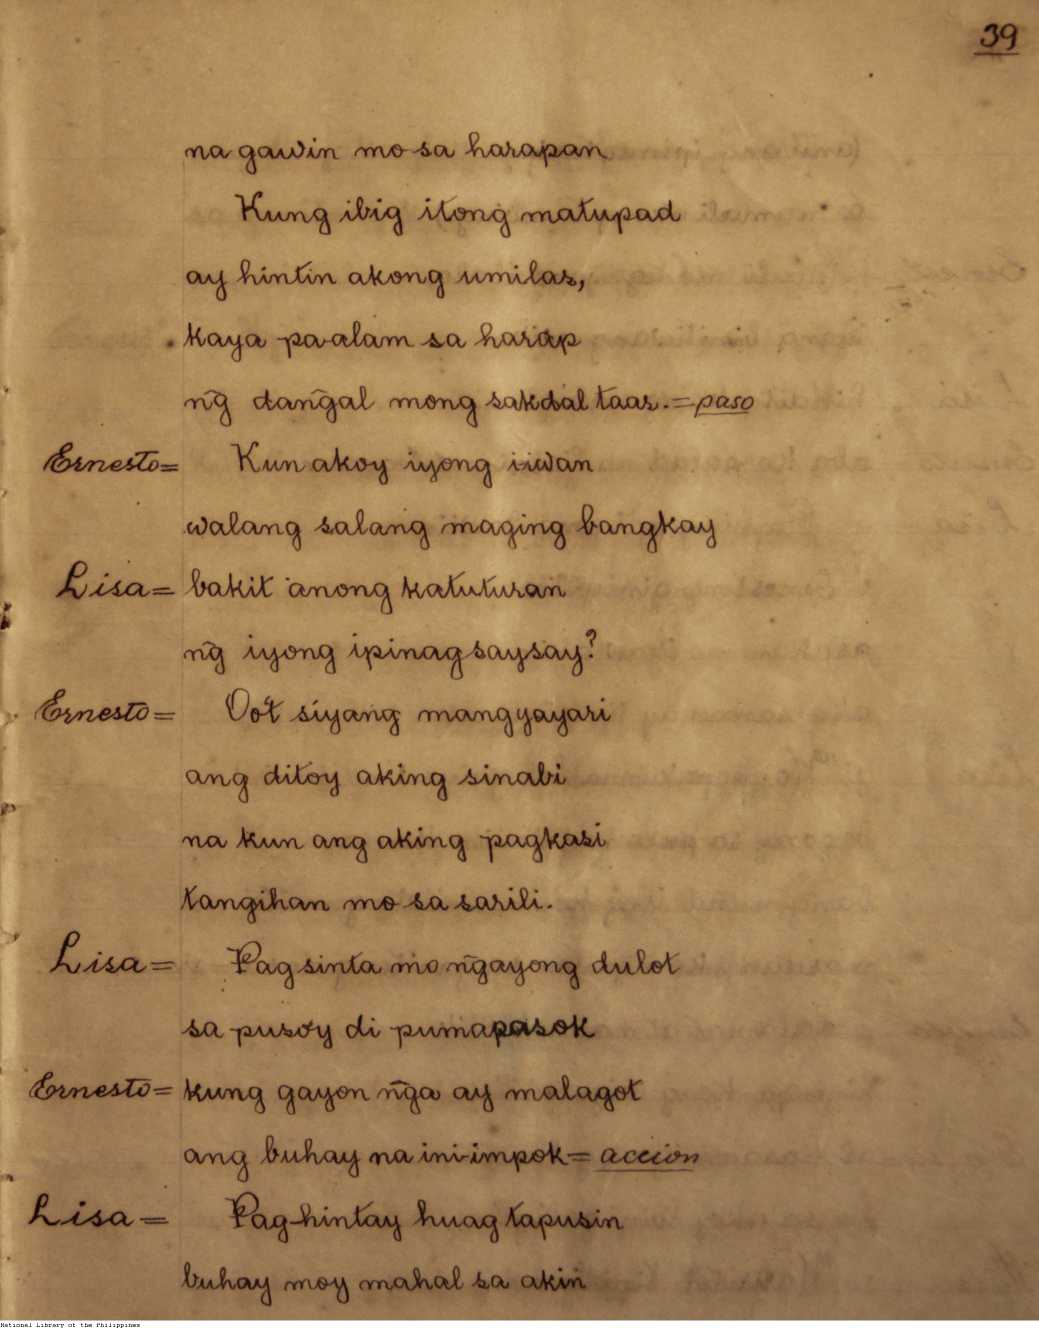 39
na gawin mo sa harapan
Kung ibig itong matupad
ay hintin akong umilas,
kaya pa-alam sa harap
ng̃ dang̃al mong sakdal taas.=paso
Ernesto= Kun akoy iyong iiwan
walang salang maging bangkay
Lisa= bakit anong katuturan
ng̃ iyong ipinagsaysay?
Ernesto= Oo't siyang mangyayari
ang ditoy aking sinabi
na kun ang aking pagkasi
tangihan mo sa sarili.
Lisa= Pagsinta mo ng̃ayong dulot
sa pusoy di pumapasok
Ernesto= kung gayon ng̃a ay malagot
ang buhay na ini-impok=accion
Lisa= Pag-hintay huag tapusin
buhay moy mahal sa akin
National Library of the Philippines